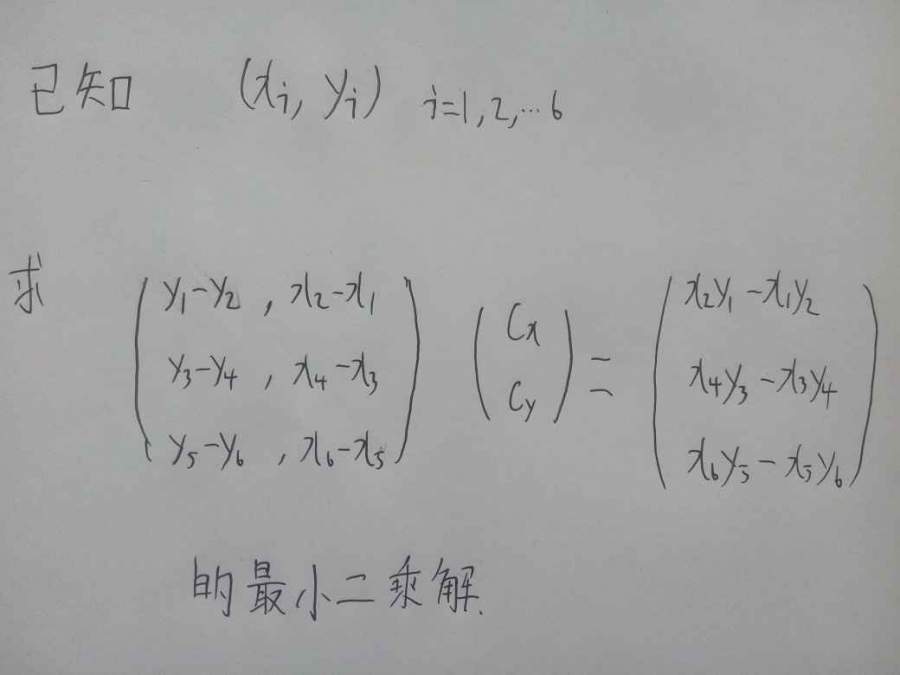 已知 (xi, yi) i=1,2,…6
求
y1-y2 , x2-x1
y3-y4 , x4-x3
y5-y6 , x6-x5
Cx
Cy
=
x2y1-x1y2
x4y3-x3y4
x6y5-x5y6
的最小二乘解